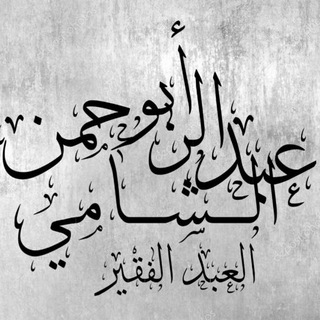 أبو عبد الرحمن
الشامي
العبد الفقير